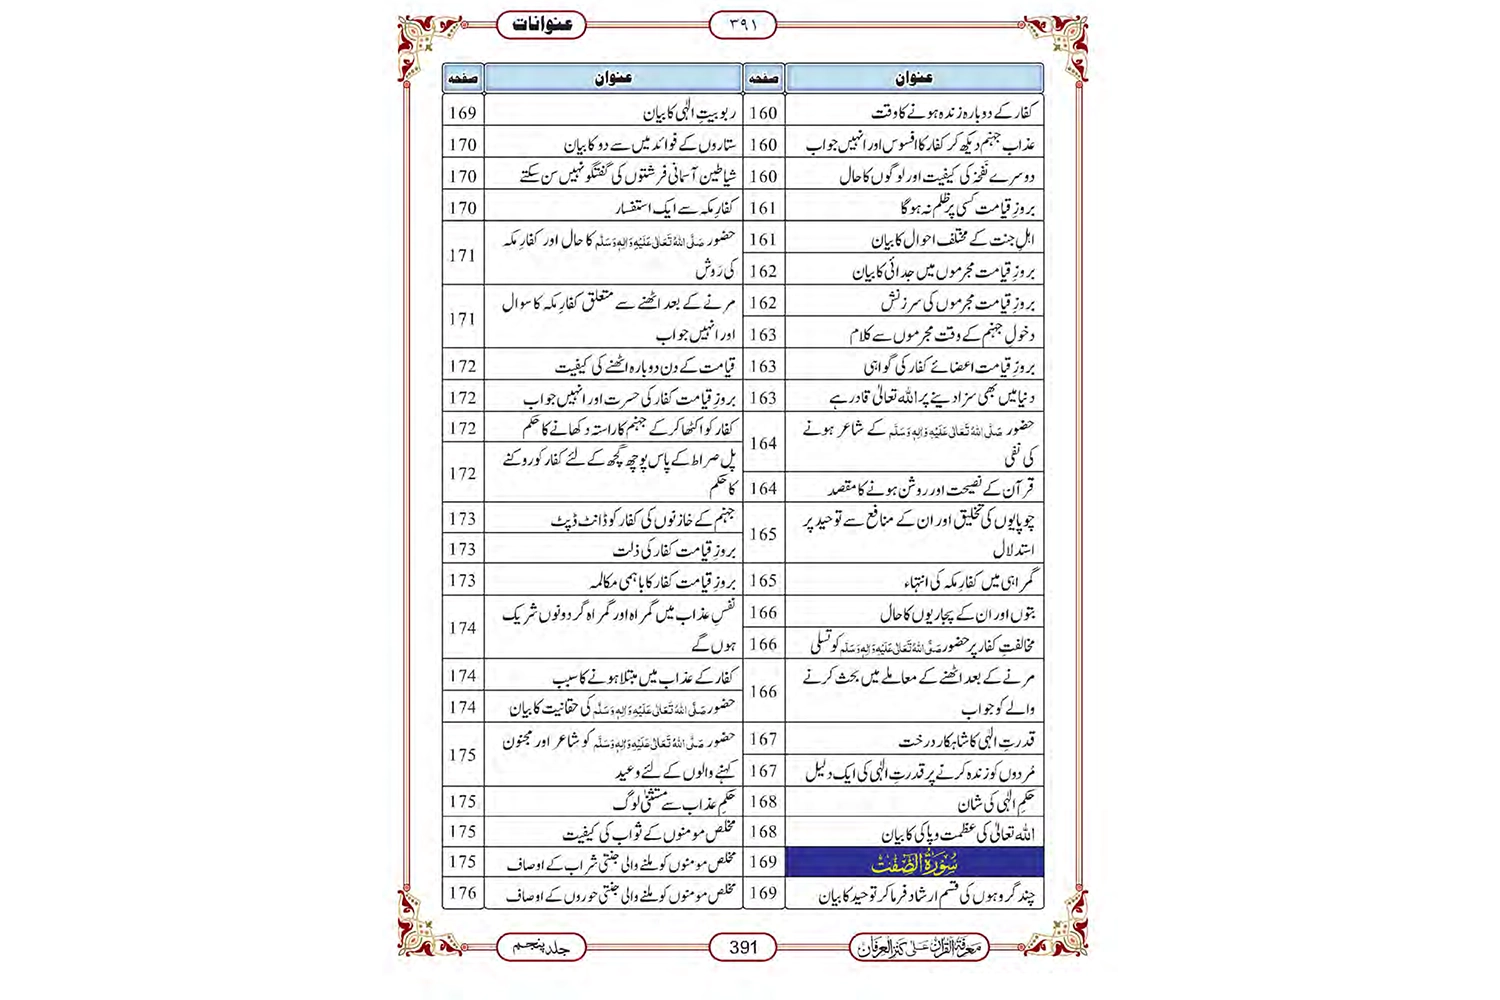 عنوانات
۳۹۱
عنوان صفحہ
کفار کے دوبارہ زندہ ہونے کا وقت 160
عذابِ جہنم دیکھ کر کفار کا افسوس اور انہیں جواب 160
دوسرے نَفخہ کی کیفیت اور لوگوں کا حال 160
بروزِ قیامت کسی پر ظلم نہ ہوگا 161
اہلِ جنت کے مختلف احوال کا بیان 161
بروزِ قیامت مجرموں میں جدائی کا بیان 162
بروزِ قیامت مجرموں کی سرزنش 162
دخولِ جہنم کے وقت مجرموں سے کلام 163
بروزِ قیامت اعضائے کفار کی گواہی 163
دنیا میں بھی سزا دینے پر اللہ تعالیٰ قادر ہے 163
حضور صَلَّی اللہُ تَعَالٰی عَلَیْہِ وَاٰلِہٖ وَسَلَّم کے شاعر ہونے
کی نفی 164
قرآن کے نصیحت اور روشن ہونے کا مقصد 164
چوپایوں کی تخلیق اور ان کے منافع سے توحید پر
استدلال 165
گمراہی میں کفارِ مکہ کی انتہاء 165
بتوں اور ان کے پجاریوں کا حال 166
مخالفتِ کفار پر حضور صَلَّی اللہُ تَعَالٰی عَلَیْہِ وَاٰلِہٖ وَسَلَّم کو تسلی 166
مرنے کے بعد اٹھنے کے معاملے میں بحث کرنے
والے کو جواب 166
قدرتِ الٰہی کا شاہکار درخت 167
مُردوں کو زندہ کرنے پر قدرتِ الٰہی کی ایک دلیل 167
حکمِ الٰہی کی شان 168
اللہ تعالیٰ کی عظمت و پاکی کا بیان 168
سُوْرَۃُ الصّٰفّٰت 169
چند گروہوں کی قسم ارشاد فرما کر توحید کا بیان 169
عنوان صفحہ
ربوبیتِ الٰہی کا بیان 169
ستاروں کے فوائد میں سے دو کا بیان 170
شیاطین آسمانی فرشتوں کی گفتگو نہیں سن سکتے 170
کفارِ مکہ سے ایک استفسار 170
حضور صَلَّی اللہُ تَعَالٰی عَلَیْہِ وَاٰلِہٖ وَسَلَّم کا حال اور کفارِ مکہ
کی رَوِش 171
مرنے کے بعد اٹھنے سے متعلق کفارِ مکہ کا سوال
اور انہیں جواب 171
قیامت کے دن دوبارہ اٹھنے کی کیفیت 172
بروزِ قیامت کفار کی حسرت اور انہیں جواب 172
کفار کو اکٹھا کر کے جہنم کا راستہ دکھانے کا حکم 172
پل صراط کے پاس پوچھ گچھ کے لئے کفار کو روکنے
کا حکم 172
جہنم کے خازنوں کی کفار کو ڈانٹ ڈپٹ 173
بروزِ قیامت کفار کی ذلت 173
بروزِ قیامت کفار کا باہمی مکالمہ 173
نفسِ عذاب میں گمراہ اور گمراہ گر دونوں شریک
ہوں گے 174
کفار کے عذاب میں مبتلا ہونے کا سبب 174
حضور صَلَّی اللہُ تَعَالٰی عَلَیْہِ وَاٰلِہٖ وَسَلَّم کی حقانیت کا بیان 174
حضور صَلَّی اللہُ تَعَالٰی عَلَیْہِ وَاٰلِہٖ وَسَلَّم کو شاعر اور مجنون
کہنے والوں کے لئے وعید 175
حکمِ عذاب سے مستثنیٰ لوگ 175
مخلص مومنوں کے ثواب کی کیفیت 175
مخلص مومنوں کو ملنے والی جنتی شراب کے اوصاف 175
مخلص مومنوں کو ملنے والی جنتی حوروں کے اوصاف 176
معرفۃ القرآن علیٰ کنز العرفان
391
جلد پنجم